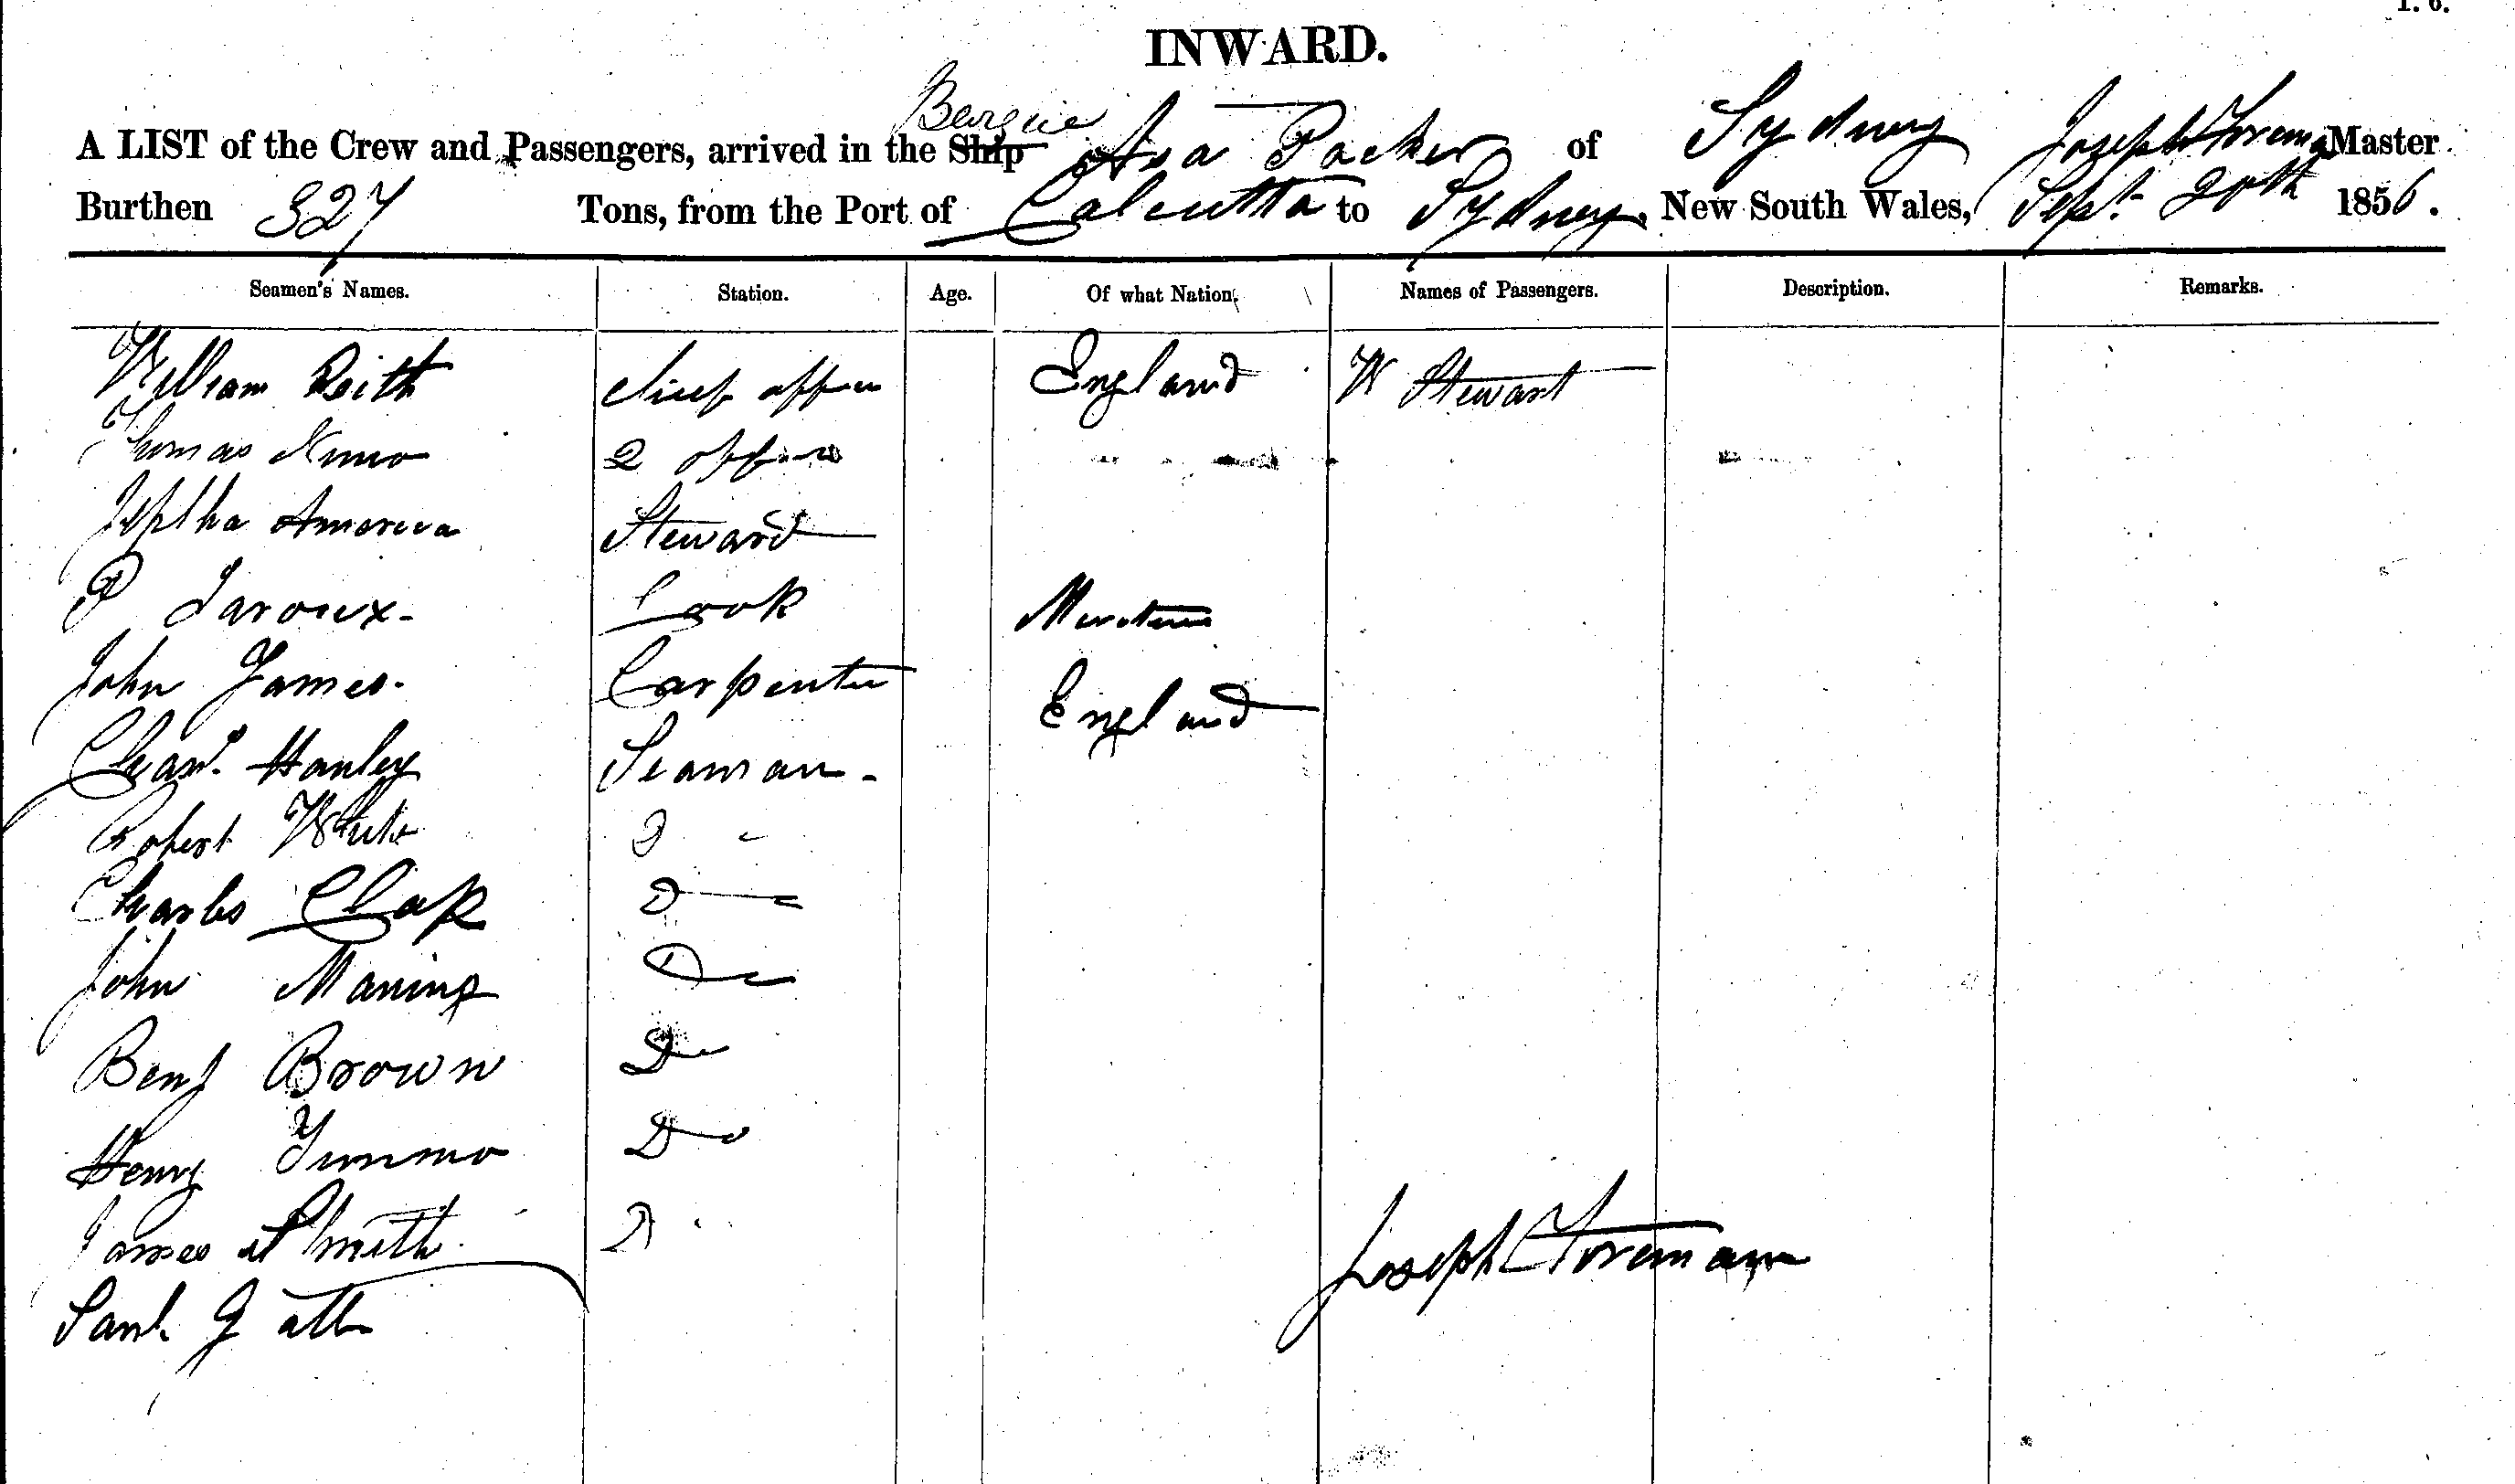 INWARD.
Barque
A LIST of the Crew and Passengers, arrived in the Ship Asa Packer of Sydney Joseph Foreman Master
Burthen 327 Tons, from the Port of Calcutta to Sydney. New South Wales, Sept. 20th 1856.
Seamen's Names. Station. Age. Of what Nation. Names of Passengers. Description. Remarks.
William Reith Chief officer England W Stewart
Thomas 2 officer
Jeptha America Steward
P Laroux Cook
John James. Carpenter England
Hanley Seaman
Robert White D
Charles D
John Maning Do
Benj Brown Do
Henry Do
James Smith D
Joseph Foreman
Saml